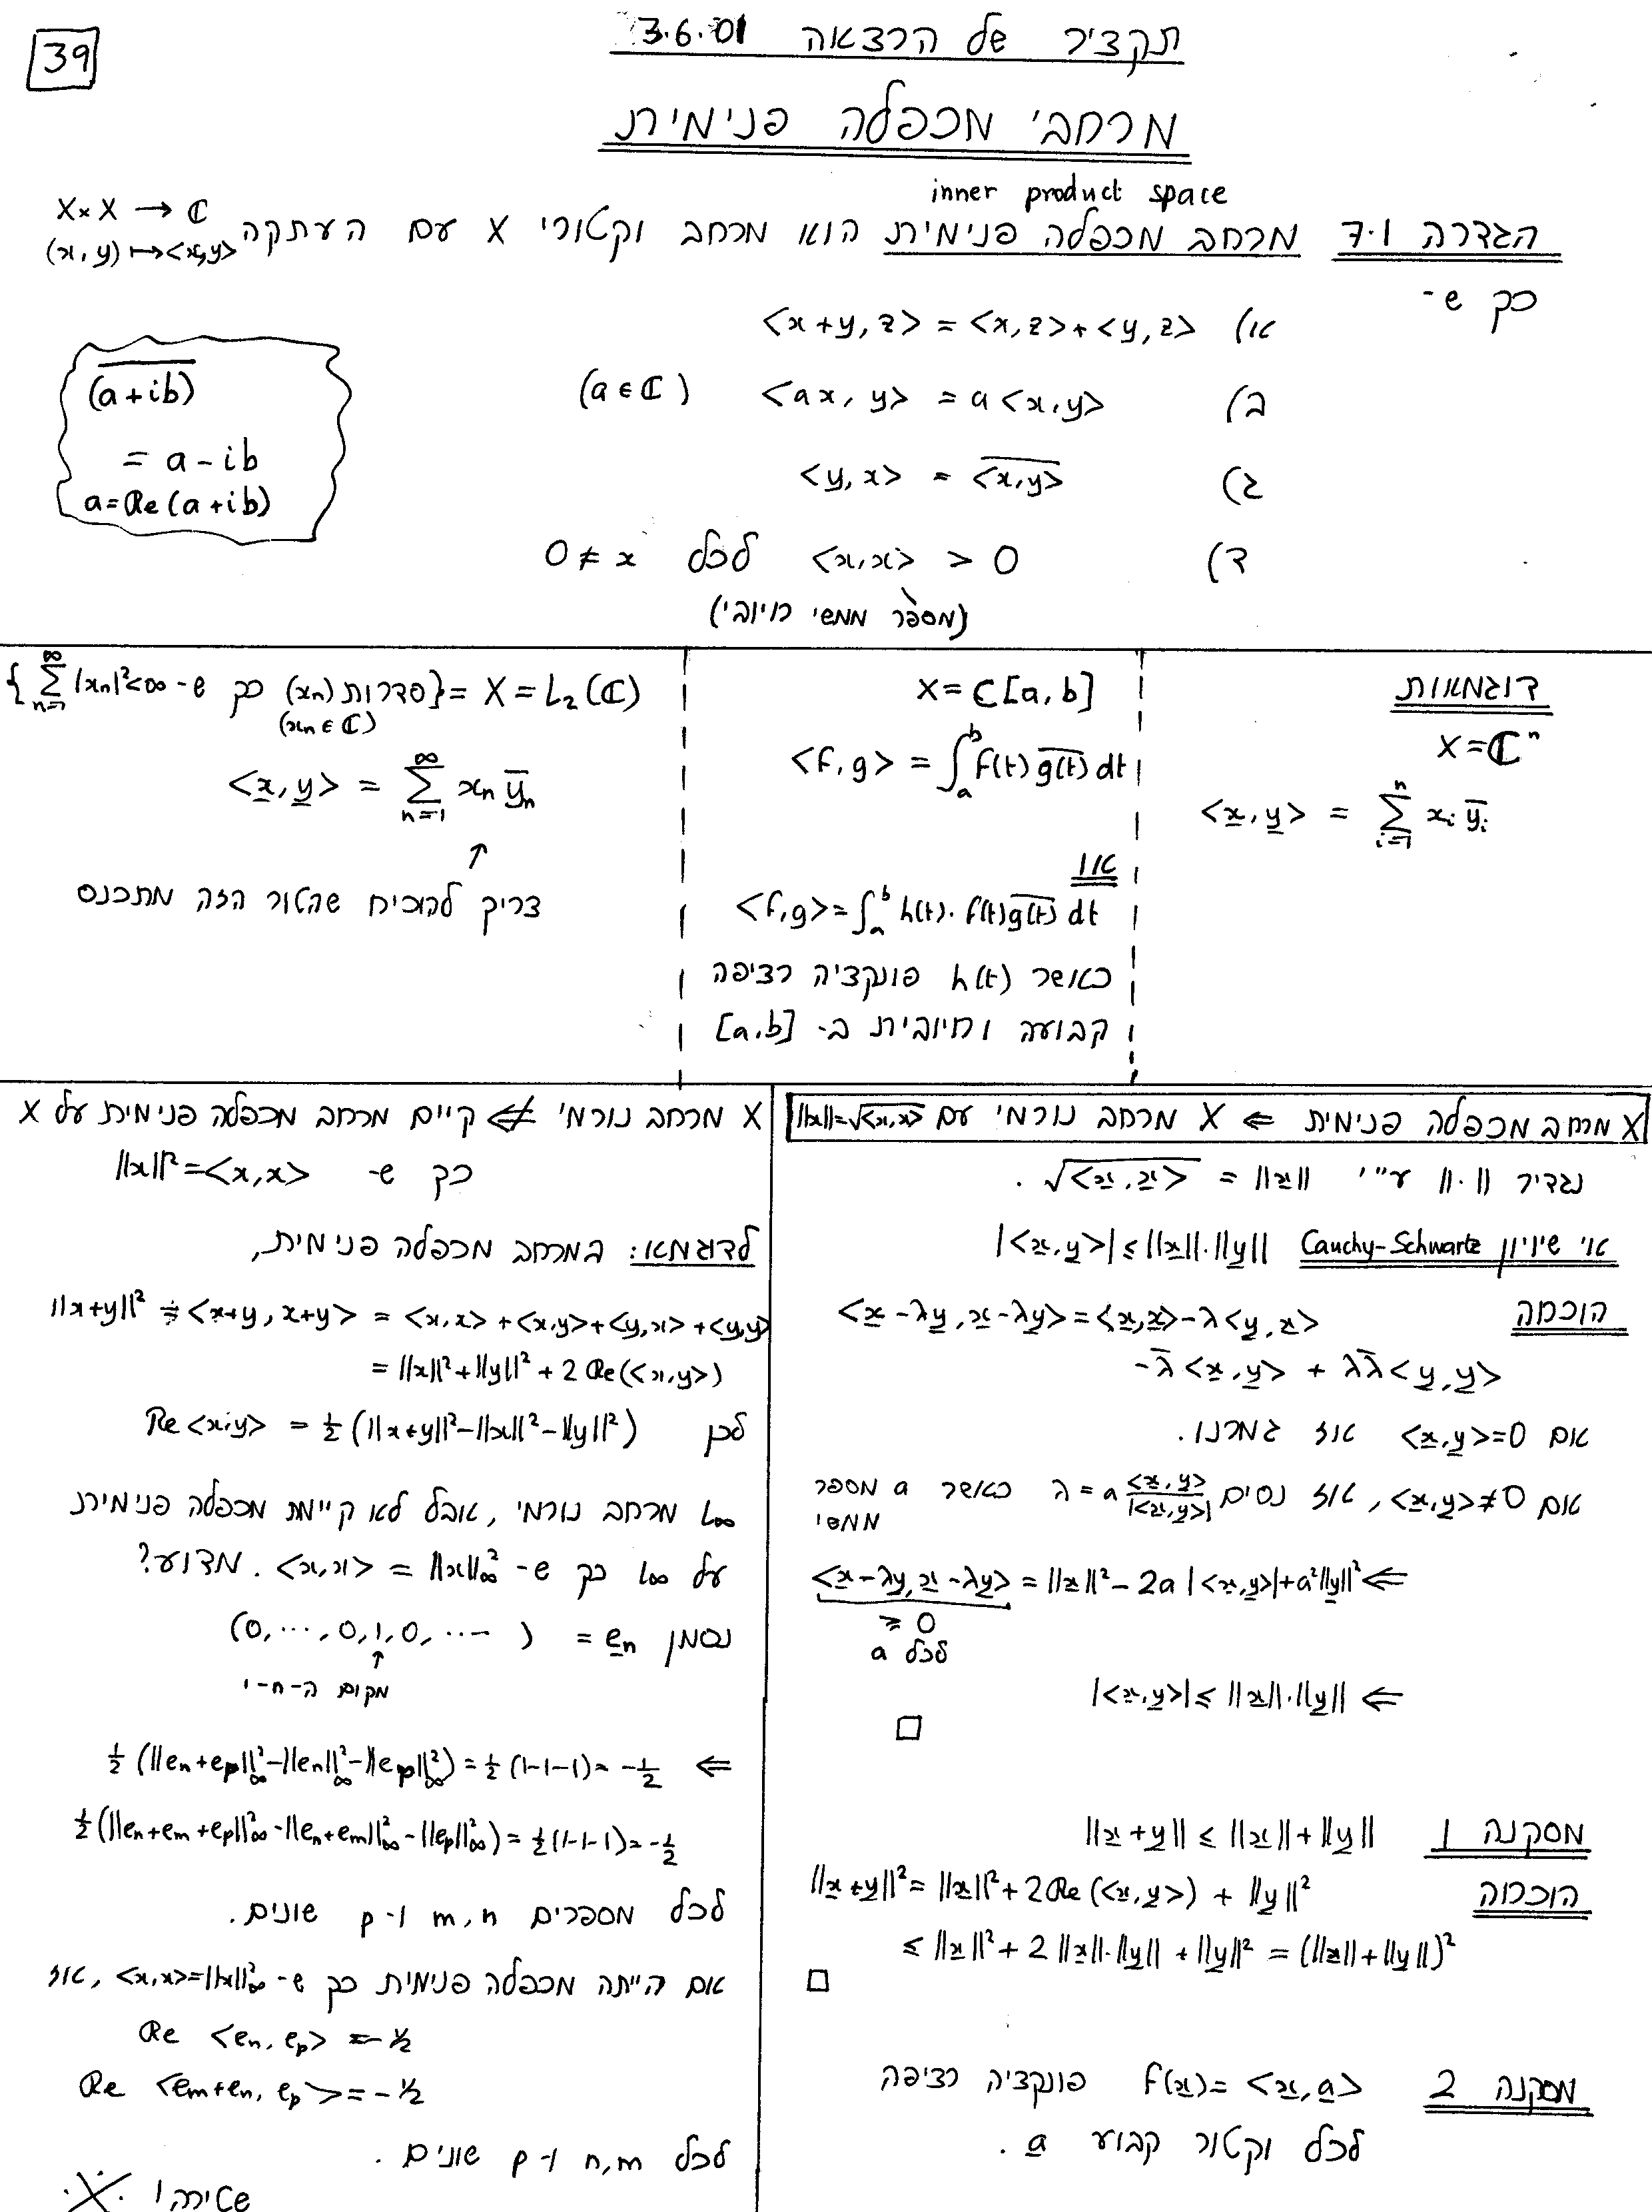 39
תקציר של הרצאה 3.6.01
מרחבי מכפלה פנימית
inner product space
הגדרה 7.1 מרחב מכפלה פנימית הוא מרחב וקטורי X עם העתקה X×X → ℂ
(x,y) ↦ <x,y>
כך ש-
א) <x+y,z> = <x,z> + <y,z>
ב) <ax, y> = a<x,y> (a∈ℂ)
ג) <y,x> = \overline{<x,y>}
ד) <x,x> > 0 לכל x ≠ 0
(מספר ממשי חיובי)
\overline{(a+ib)}
= a-ib
a=Re(a+ib)
דוגמאות
X=ℂⁿ
<x,y> = \sum_{i=1}^{n} x_i \overline{y_i}
X=C[a,b]
<f,g> = \int_a^b f(t)\overline{g(t)} dt
או
<f,g> = \int_a^b h(t)·f(t)\overline{g(t)} dt
כאשר h(t) פונקציה רציפה
קבועה וחיובית ב- [a,b]
X = L₂(ℂ) = {סדרות (x_n) כך ש- \sum_{n=1}^{∞} |x_n|²<∞}
(x_n∈ℂ)
<x,y> = \sum_{n=1}^{∞} x_n \overline{y_n}
↑
צריך להוכיח שהטור הזה מתכנס
X מרחב מכפלה פנימית ⇐ X מרחב נורמי עם ||x||=√<x,x>
נגדיר ||·|| ע"י ||x|| = √<x,x> .
אי שיוויון Cauchy-Schwartz |<x,y>| ≤ ||x||·||y||
הוכחה <x-λy,x-λy> = <x,x>-λ<y,x>
-\overline{λ}<x,y> + λ\overline{λ}<y,y>
אם <x,y>=0 אז גמרנו.
אם <x,y>≠0, אז נסים λ = a \frac{<x,y>}{|<x,y>|} כאשר a מספר
ממשי
⇐ <x-λy,x-λy> = ||x||² - 2a|<x,y>| + a²||y||²
≥ 0
לכל a
⇐ |<x,y>| ≤ ||x||·||y||
□
מסקנה 1 ||x+y|| ≤ ||x|| + ||y||
הוכחה ||x+y||² = ||x||² + 2Re(<x,y>) + ||y||²
≤ ||x||² + 2||x||·||y|| + ||y||² = (||x||+||y||)²
□
מסקנה 2 f(x) = <x,a> פונקציה רציפה
לכל וקטור קבוע a .
X מרחב נורמי ⇍ קיים מרחב מכפלה פנימית על X
כך ש- ||x||² = <x,x>
לדוגמא: במרחב מכפלה פנימית,
||x+y||² = <x+y, x+y> = <x,x> + <x,y> + <y,x> + <y,y>
= ||x||² + ||y||² + 2Re(<x,y>)
לכן Re<x,y> = ½(||x+y||²-||x||²-||y||²)
L∞ מרחב נורמי, אבל לא קיימת מכפלה פנימית
על L∞ כך ש- <x,x> = ||x||²_∞ . מדוע?
נסמן e_n = (0,···,0,1,0,··· )
↑
מקום ה-n-י
⇐ ½(||e_n+e_p||²_∞-||e_n||²_∞-||e_p||²_∞) = ½(1-1-1) = -½
½(||e_n+e_m+e_p||²_∞-||e_n+e_m||²_∞-||e_p||²_∞) = ½(1-1-1) = -½
לכל מספרים m,n ו-p שונים.
אם הייתה מכפלה פנימית כך ש- <x,x>=||x||²_∞, אז
Re <e_n, e_p> = -½
Re <e_m+e_n, e_p> = -½
לכל n,m ו-p שונים.